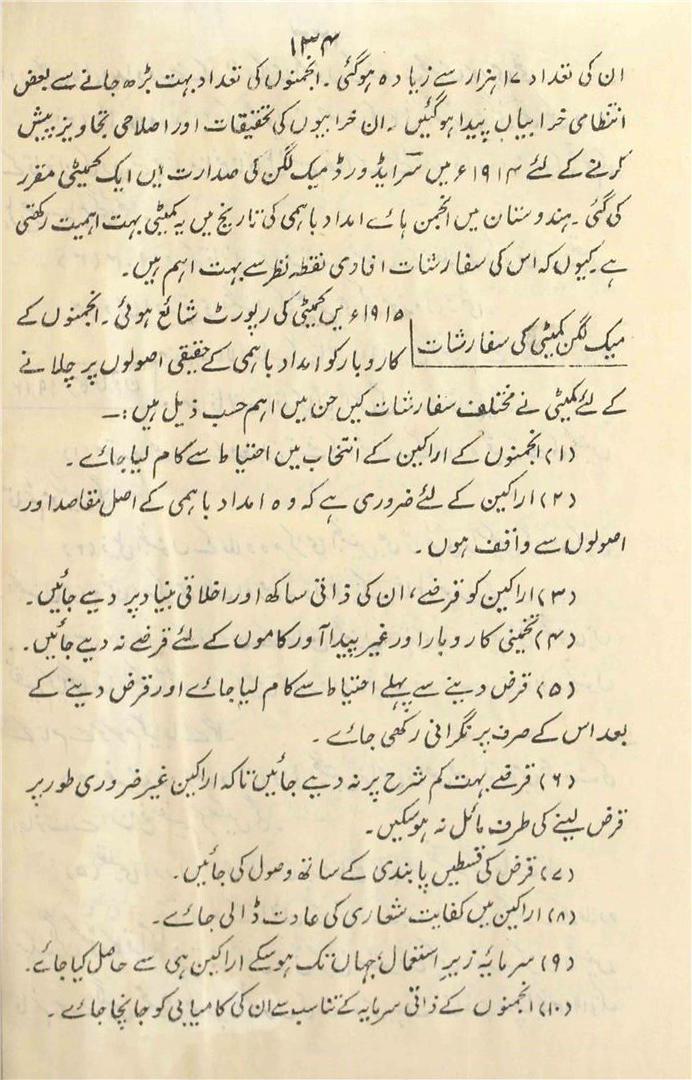 ۱۳۴
ان کی تعداد ۱۷ ہزار سے زیادہ ہوگئی ۔ انجمنوں کی تعداد بہت بڑھ جانے سے بعض
انتظامی خرابیاں پیدا ہوگئیں ۔ ان خرابیوں کی تحقیقات اور اصلاحی تجاویز پیش
کرنے کے لئے ۱۹۱۴ء میں سر ایڈورڈ میک لگن کی صدارت میں ایک کمیٹی مقرر
کی گئی ۔ ہندوستان میں انجمن ہائے امداد باہمی کی تاریخ میں یہ کمیٹی بہت اہمیت رکھتی
ہے ۔ کیوں کہ اس کی سفارشات افادی نقطہ نظر سے بہت اہم ہیں۔
میک لگن کمیٹی کی سفارشات ۱۹۱۵ء میں کمیٹی کی رپورٹ شائع ہوئی ۔ انجمنوں کے
کاروبار کو امداد باہمی کے حقیقی اصولوں پر چلانے
کے لئے کمیٹی نے مختلف سفارشات کیں جن میں اہم حسب ذیل ہیں :۔
(۱) انجمنوں کے اراکین کے انتخاب میں احتیاط سے کام لیا جائے ۔
(۲) اراکین کے لئے ضروری ہے کہ وہ امداد باہمی کے اصل مقاصد اور
اصولوں سے واقف ہوں ۔
(۳) اراکین کو قرضے، ان کی ذاتی ساکھ اور اخلاقی بنیاد پر دیے جائیں۔
(۴) تخمینی کاروبار اور غیر پیدا آور کاموں کے لئے قرضے نہ دیے جائیں۔
(۵) قرض دینے سے پہلے احتیاط سے کام لیا جائے اور قرض دینے کے
بعد اس کے صرف پر نگرانی رکھی جائے ۔
(۶) قرضے بہت کم شرح پر نہ دیے جائیں تاکہ اراکین غیر ضروری طور پر
قرض لینے کی طرف مائل نہ ہوسکیں۔
(۷) قرض کی قسطیں پابندی کے ساتھ وصول کی جائیں۔
(۸) اراکین میں کفایت شعاری کی عادت ڈالی جائے۔
(۹) سرمایۂ زیر استعمال جہاں تک ہوسکے اراکین ہی سے حاصل کیا جائے۔
(۱۰) انجمنوں کے ذاتی سرمایہ کے تناسب سے ان کی کامیابی کو جانچا جائے ۔